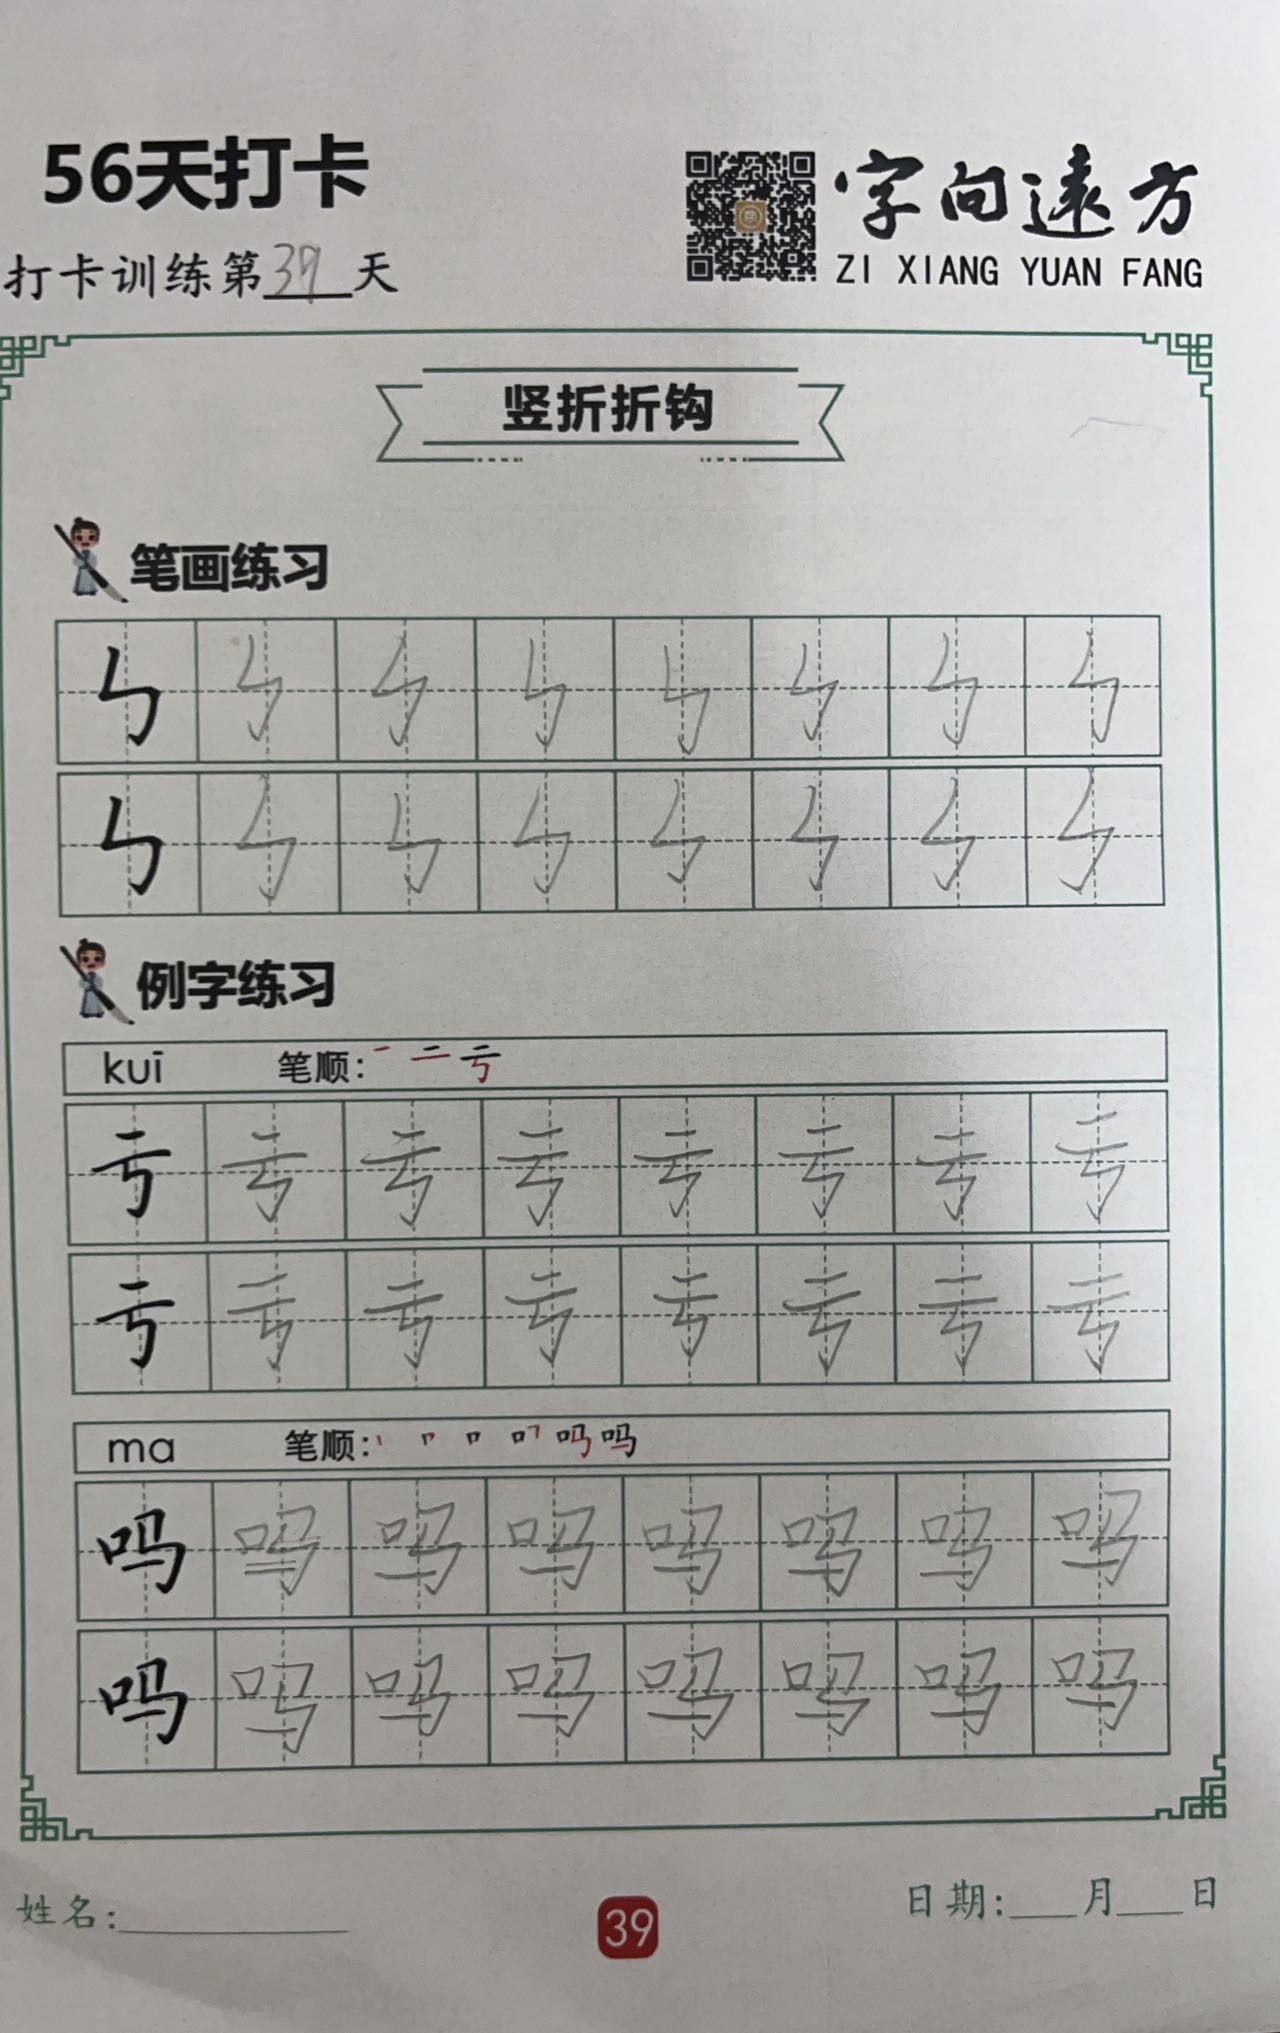 56天打卡
字向遠方
ZI XIANG YUAN FANG
打卡训练第39天
竖折折钩
笔画练习
ㄣ ㄣ ㄣ ㄣ ㄣ ㄣ ㄣ ㄣ
ㄣ ㄣ ㄣ ㄣ ㄣ ㄣ ㄣ ㄣ
例字练习
kuī 笔顺: 一 二 亏
亏 亏 亏 亏 亏 亏 亏 亏
亏 亏 亏 亏 亏 亏 亏 亏
ma 笔顺: 吗
吗 吗 吗 吗 吗 吗 吗 吗
吗 吗 吗 吗 吗 吗 吗 吗
姓名:
39
日期: 月 日